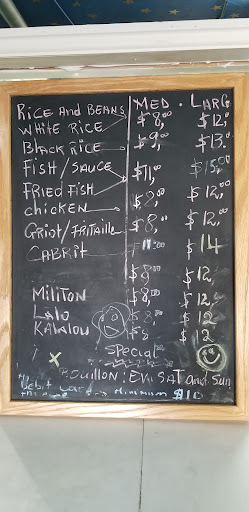 MED. LARG
RICE AND BEANS $8,00 $12,
WHITE RICE
BLACK RICE $9,00 $13,
FISH/SAUCE $11,00 $15,00
FRIED FISH $12,00
CHICKEN $8,00 $12,00
GRIOT/FRITAILLE $8, $14
CABRIT 11:00
$9 $12,
MILITON $8,00 $12,
LALO $8, $12
KALALOU $8 $12
SPECIAL
BOUILLON: EV. SAT and SUN
Debit card minimum $10